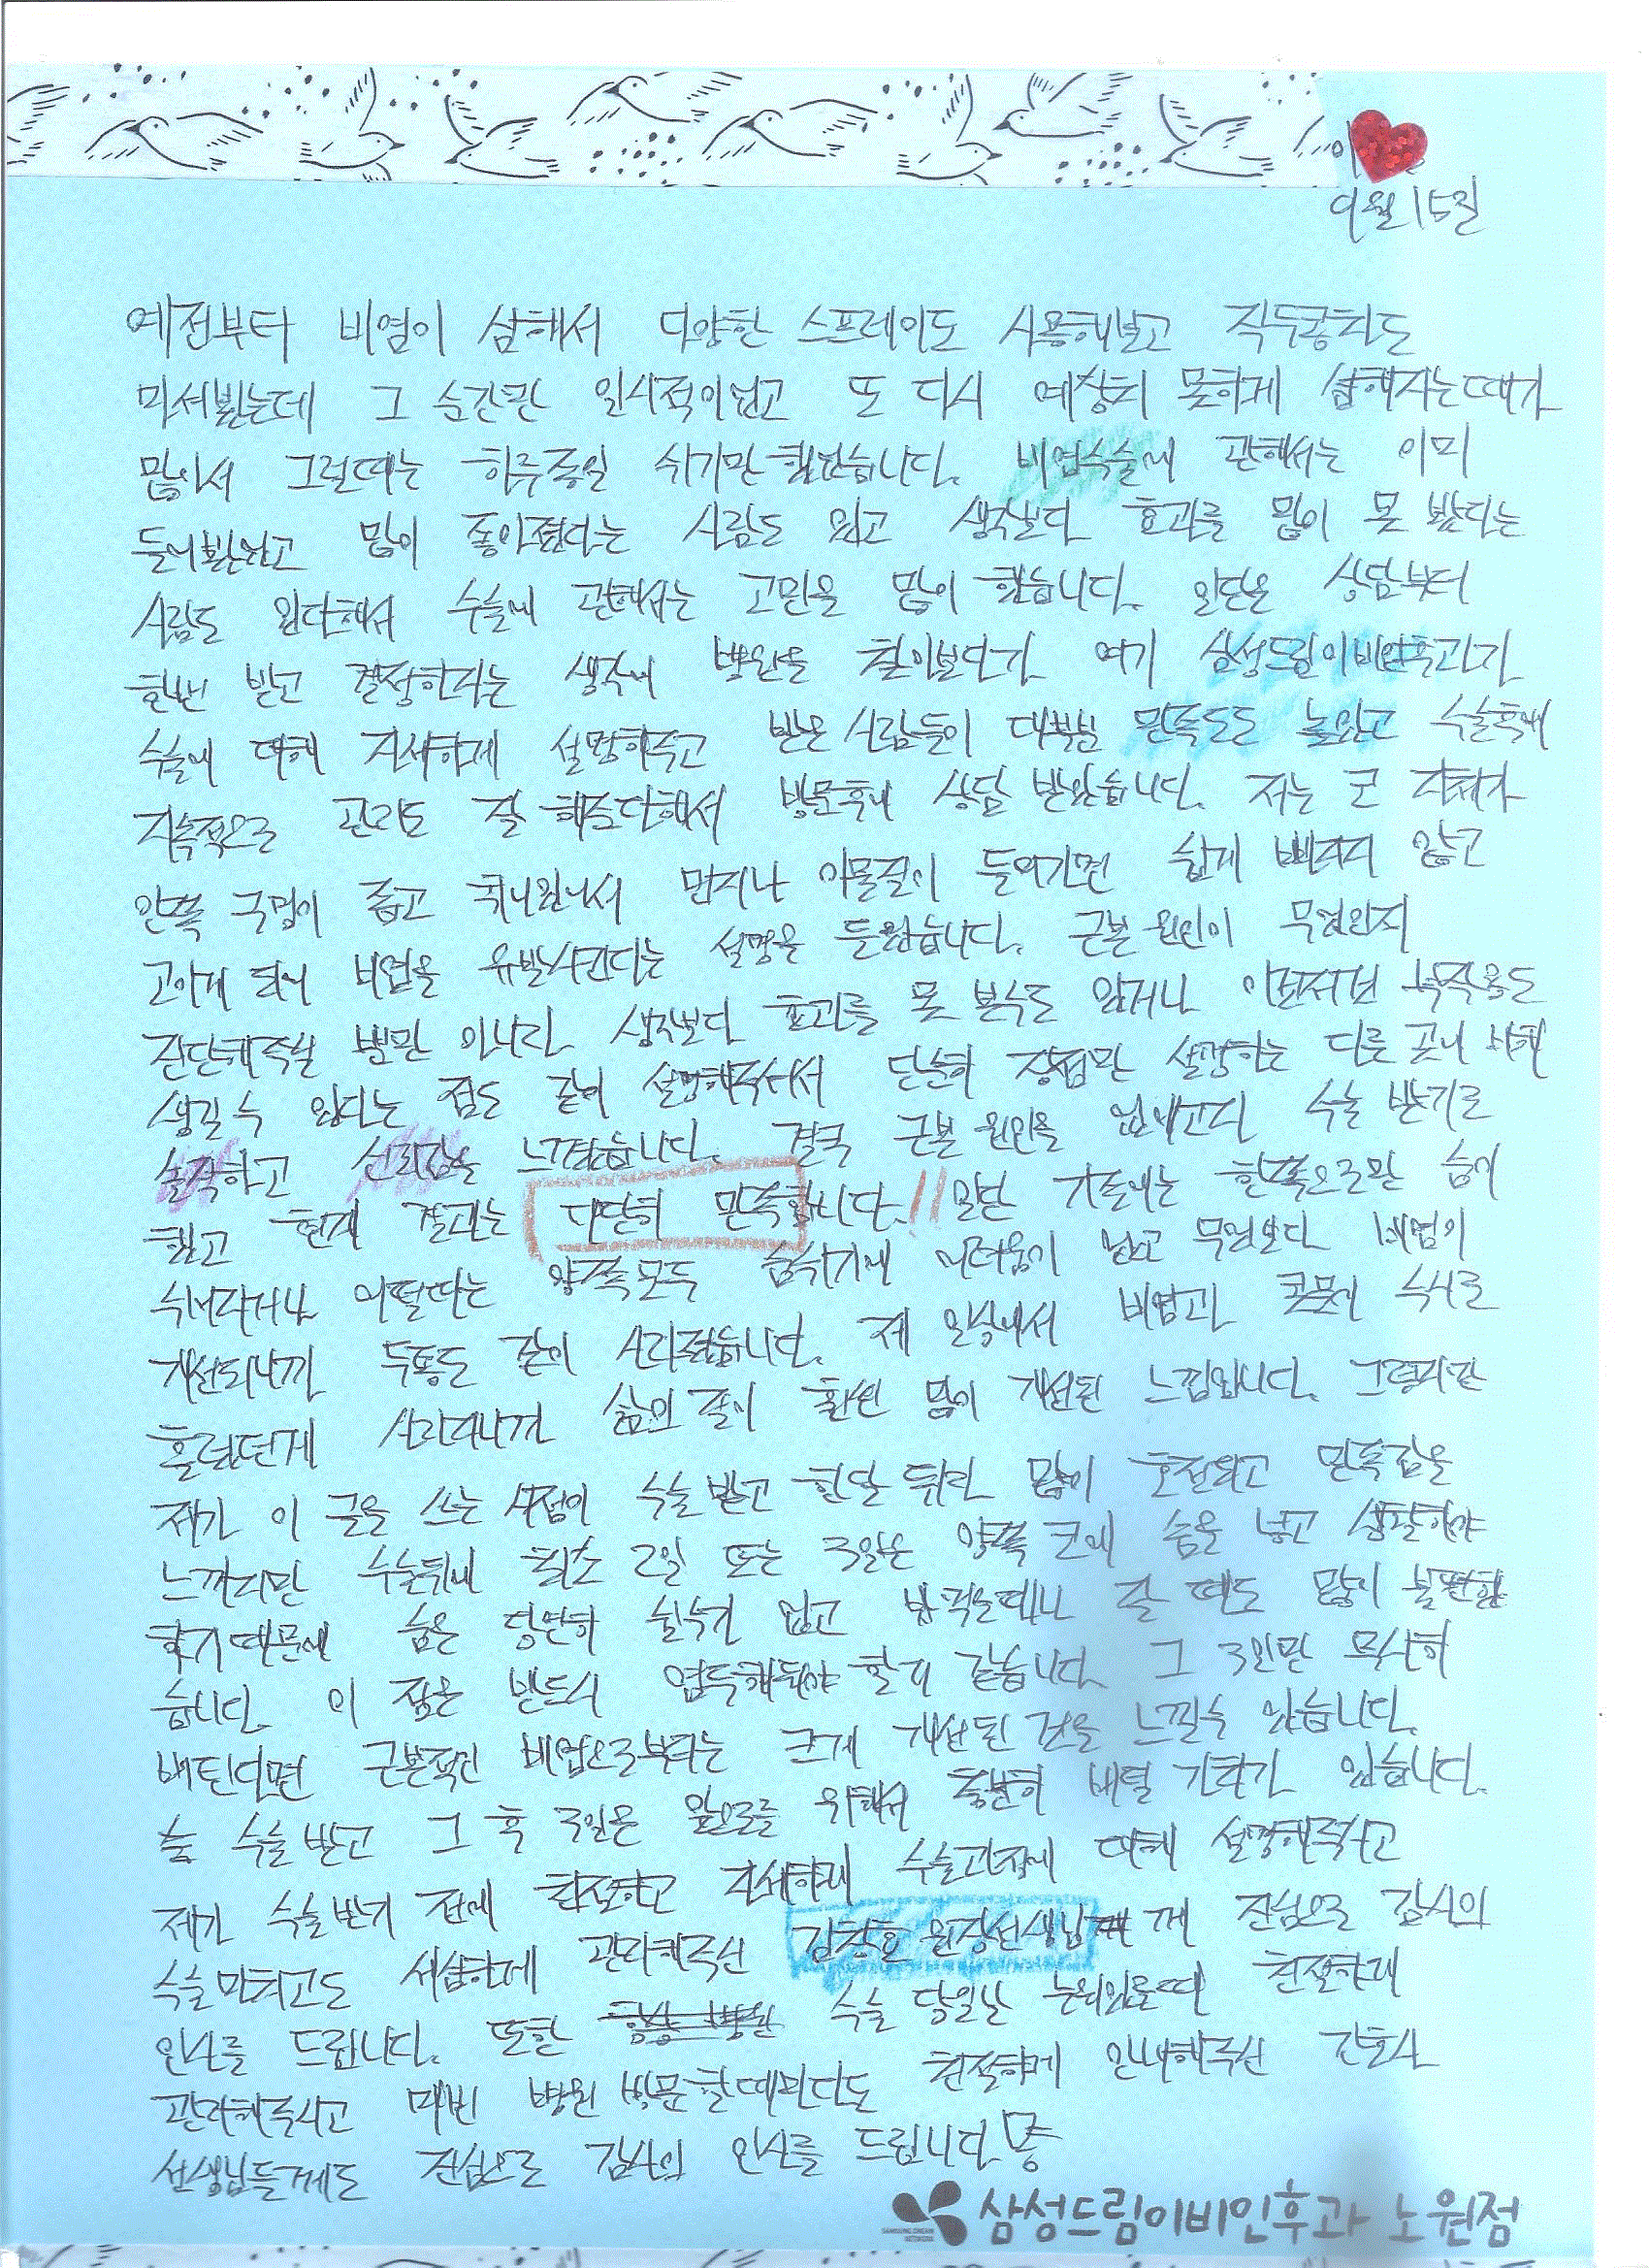 9월 15일
예전부터 비염이 심해서 다양한 스프레이도 사용해보고 작두콩차도
마셔봤는데 그 순간만 일시적이었고 또 다시 예상치 못하게 심해지는때가
많아서 그럴때는 하루종일 쉬기만 했었습니다. 비염수술에 관해서는 이미
들어봤었고 많이 좋아졌다는 사람도 있고 생각보다 효과를 많이 못 봤다는
사람도 있다해서 수술에 관해서는 고민을 많이 했습니다. 일단은 상담부터
한번 받고 결정하자는 생각에 병원을 찾아보다가 여기 삼성드림이비인후과가
수술에 대해 자세하게 설명해주고 받은 사람들이 대부분 만족도도 높았고 수술후에
지속적으로 관리도 잘 해준다해서 방문후에 상담 받았습니다. 저는 코 자체가
안쪽 구멍이 좁고 휘어있어서 먼지나 이물질이 들어가면 쉽게 빠지지 않고
고이게 되어 비염을 유발시킨다는 설명을 들었습니다. 근본 원인이 무엇인지
진단해주실 뿐만 아니라 생각보다 효과를 못 볼수도 있거나 이런저런 부작용도
생길 수 있다는 점도 같이 설명해주셔서 단순히 장점만 설명하는 다른 곳에 비해
솔직하고 신뢰감을 느꼈습니다. 결국 근본 원인을 없애고자 수술 받기로
했고 현재 결과는 대단히 만족합니다.!! 일단 기존에는 한쪽으로만 숨이
쉬어지거나 어떨때는 양쪽모두 숨쉬기에 어려움이 났고 무엇보다 비염이
개선되니까 두통도 같이 사라졌습니다. 제 일상에서 비염과 콧물이 수시로
흘렀던게 사라지니까 삶의 질이 훨씬 많이 개선된 느낌입니다. 그렇지만
제가 이 글을 쓰는 시점이 수술 받고 한달 뒤라 많이 호전되고 만족감을
느끼지만 수술뒤에 최소 2일 또는 3일은 양쪽 코에 솜을 넣고 생활해야
하기 때문에 숨은 당연히 쉴수가 없고 밥 먹을때나 잘 때도 많이 불편했
습니다. 이 점은 반드시 염두해둬야 할거 같습니다. 그 3일만 무사히
버틴다면 근본적인 비염으로부터는 크게 개선된 것을 느낄수 있습니다.
수술 받고 그 후 3일은 앞으로를 위해서 충분히 버틸 가치가 있습니다.
제가 수술받기 전에 친절하고 자세하게 수술과정에 대해 설명해주시고
수술 마치고도 세심하게 관리해주신 김창호 원장선생님께 진심으로 감사의
인사를 드립니다. 또한 수술 당일날 누워있을때 친절하게
관리해주시고 매번 병원 방문할때마다도 친절하게 안내해주신 간호사
선생님들께도 진심으로 감사의 인사를 드립니다
삼성드림이비인후과 노원점